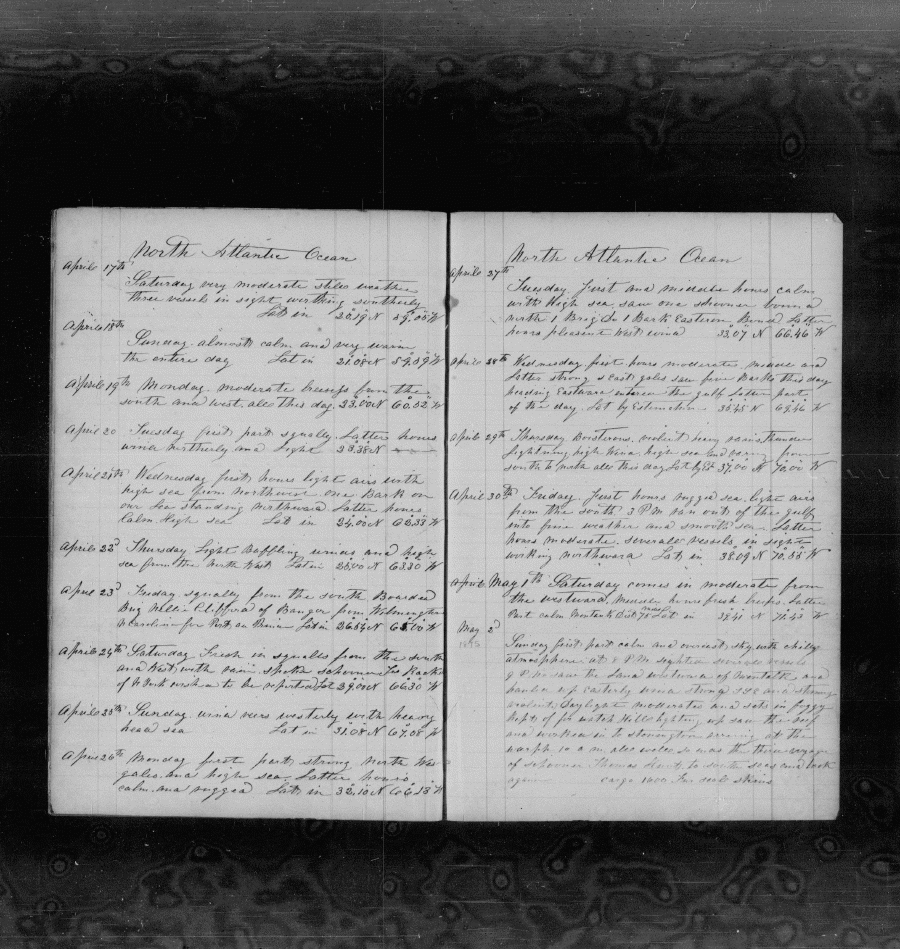 North Atlantic Ocean
April 17th
Saturday very moderate still weather
three vessels in sight working southerly
Lat in 20.19 N 59.05 W
April 18th
Sunday almost calm and very warm
the entire day Lat in 21.08 N 59.59 W
April 19th Monday moderate breezes from the
south and west all this day 23.00 N 60.52 W
April 20 Tuesday first part squally. Latter hours
wind northerly and Light 23.38 N
April 21st Wednesday first hours light airs with
high sea from Northwest one Bark on
our Lee standing northward Latter hours
Calm High sea Lat in 24.00 N 62.33 W
April 22d Thursday Light Baffling winds and high
sea from the North West Lat in 25.00 N 63.30 W
April 23d Friday squally from the south Boarded
Brig Nellie Clifford of Bangor from Wilmington
N Carolina for Port au Lat in 26.54 N 65.00 W
April 24th Saturday Fresh in squalls from the south
and West with rain spoke schooner
of N York wished to be reported Lat 29.00 N 66.30 W
April 25th Sunday wind veers westerly with heavy
head sea Lat in 31.08 N 67.08 W
April 26th Monday first part strong North West
gales and high sea Latter hours
calm and rugged Lat in 32.10 N 66.13 W
North Atlantic Ocean
April 27th
Tuesday. First and middle hours calm
with High sea saw one schooner bound
north 1 Brig Do 1 Bark Eastern Bound Latter
hours pleasant West wind 33.07 N 66.46 W
April 28th Wednesday first hours moderate middle and
latter strong s East gales saw five Barks this day
heading Eastward entered the gulf Latter part
of the day. Lat by Estimation 35.45 N 69.46 W
April 29th Thursday Boisterous, violent heavy rains thunder
lightning high wind high sea and
south to north all this day Lat by Est 37.00 N 70.00 W
April 30th Friday First hours rugged sea, light airs
from the south 3 P M ran out of the gulf
into fine weather and smooth sea Latter
hours moderate, severale vessels in sight
working northward Lat in 38.09 N 70.55 W
May 1th Saturday comes in moderate from
the westward, Middle hours fresh breezes. Latter
Part calm Montauk Dist 75 miles Lat in 39.41 N 71.43 W
May 2d
Sunday first part calm and overcast sky with chilly
atmosphere at 8 P M sighted severale vessels
9 P M saw the Land westward of Montalk and
hauled up easterly wind strong S S E and strong
Daylight moderates and sets in foggy
kept of for watch Hill lighting up saw the reef
and worked in to stonington arriving at the
warph 10 a m, all well so was the third voyage
of schooner Thomas Hunt to south seas and back
again cargo 1000 Fur seal skins